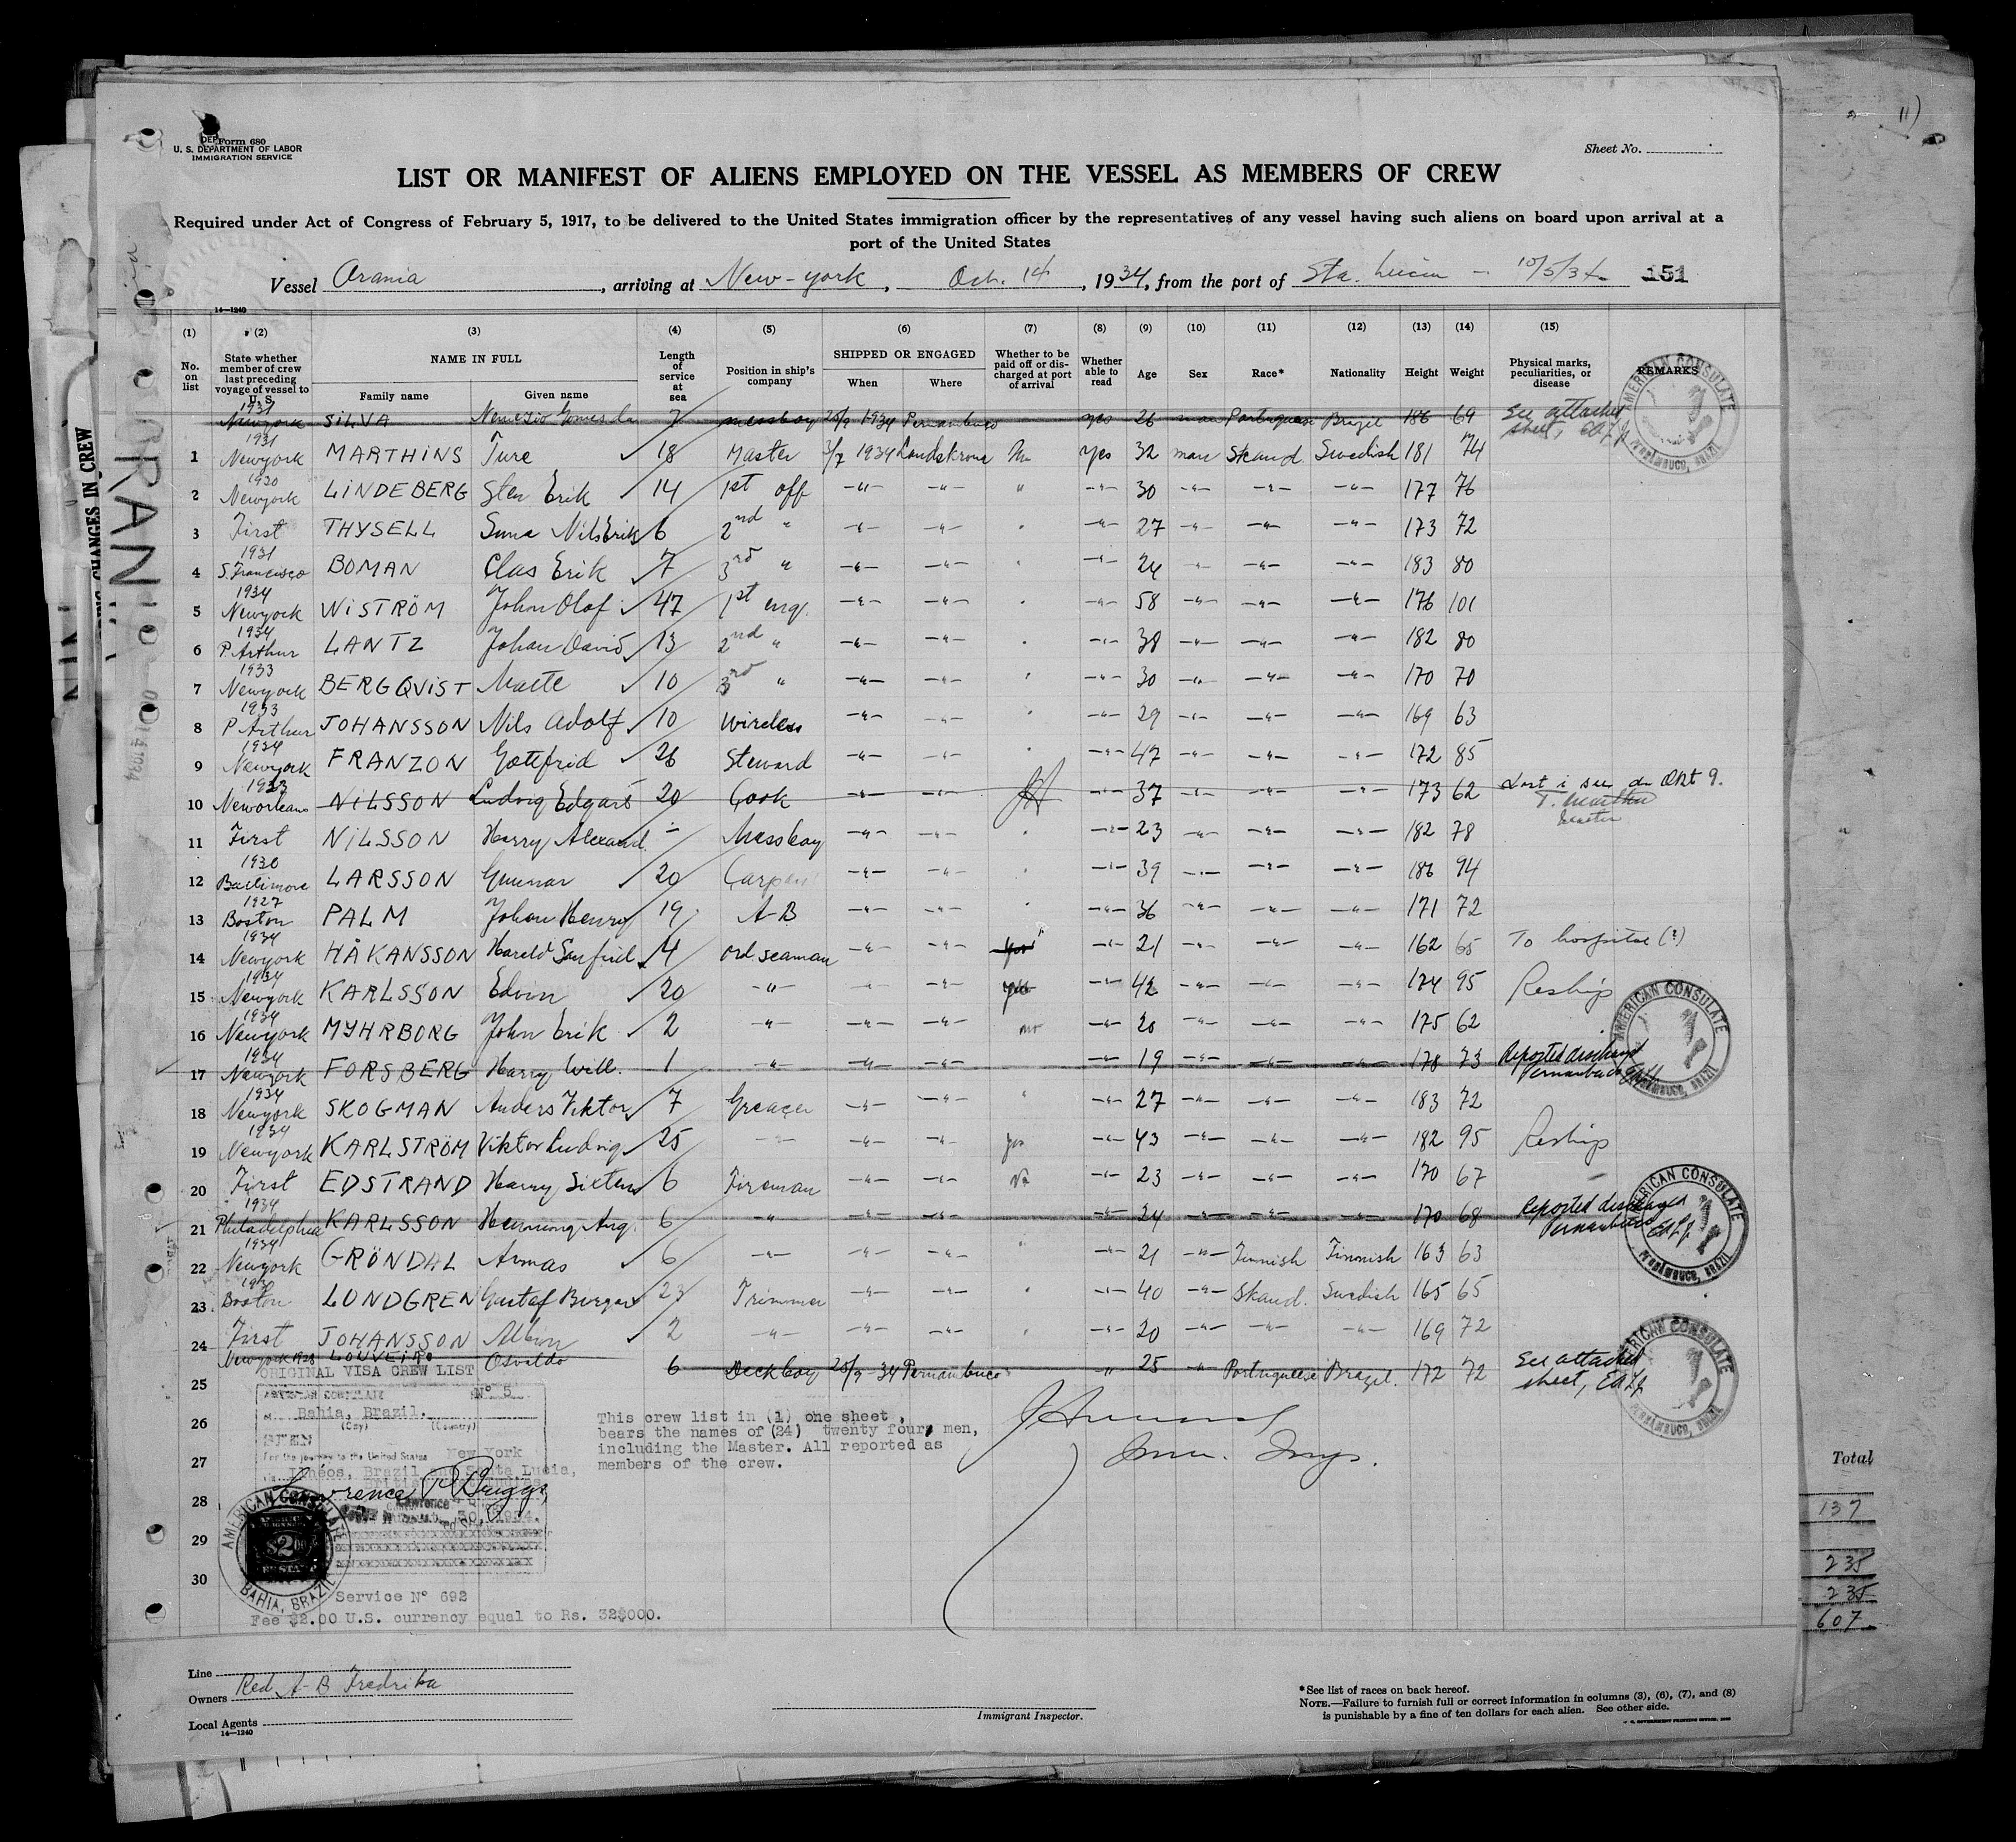 11)
DEP Form 680
U. S. DEPARTMENT OF LABOR
IMMIGRATION SERVICE
Sheet No.
LIST OR MANIFEST OF ALIENS EMPLOYED ON THE VESSEL AS MEMBERS OF CREW
Required under Act of Congress of February 5, 1917, to be delivered to the United States immigration officer by the representatives of any vessel having such aliens on board upon arrival at a
port of the United States
Vessel Orania, arriving at New-york, Oct. 14, 1934, from the port of Sta. Lucia - 10/5/34 151
14—1240
(1) (2) (3) (4) (5) (6) (7) (8) (9) (10) (11) (12) (13) (14) (15)
No. on list
State whether member of crew last preceding voyage of vessel to U. S.
NAME IN FULL
Family name
Given name
Length of service at sea
Position in ship's company
SHIPPED OR ENGAGED
When
Where
Whether to be paid off or discharged at port of arrival
Whether able to read
Age
Sex
Race*
Nationality
Height
Weight
Physical marks, peculiarities, or disease
REMARKS
1931 Newyork SILVA Nemezio Gomes da 7 messboy 20/9 1934 Pernambuco yes 26 man Portuguese Brazil 186 69 See attached sheet,
1 1931 Newyork MARTHINS Ture 18 Master 3/7 1934 Landskrona No yes 32 man Skand. Swedish 181 74
2 1930 Newyork LINDEBERG Sten Erik 14 1st off -"- -"- " -"- 30 -"- -"- -"- 177 76
3 First THYSELL Sune Nils Erik 6 2nd " -"- -"- -"- 27 -"- -"- -"- 173 72
4 1931 S. Francisco BOMAN Clas Erik 7 3rd " -"- -"- -"- 24 -"- -"- -"- 183 80
5 1934 Newyork WISTRÖM John Olof 47 1st eng. -"- -"- -"- 58 -"- -"- -"- 176 101
6 1934 P. Arthur LANTZ Johan David 13 2nd " -"- -"- -"- 38 -"- -"- -"- 182 80
7 1933 Newyork BERGQVIST Malte 10 3rd " -"- -"- -"- 30 -"- -"- -"- 170 70
8 1933 P Arthur JOHANSSON Nils Adolf 10 wireless -"- -"- -"- 29 -"- -"- -"- 169 63
9 1934 Newyork FRANZON Gottfrid 26 Steward -"- -"- -"- 47 -"- -"- -"- 172 85
10 1933 Neworleans NILSSON Ludvig Edgard 20 Cook -"- -"- -"- 37 -"- -"- -"- 173 62 Lost i sea on Okt 9. T. Marthins Master
11 First NILSSON Harry Alexand. - Messboy -"- -"- -"- 23 -"- -"- -"- 182 78
12 1930 Baltimore LARSSON Gunnar 20 Carpen -"- -"- -"- 39 -"- -"- -"- 186 94
13 1927 Boston PALM Johan Henry 19 A-B -"- -"- -"- 36 -"- -"- -"- 171 72
14 1934 Newyork HÅKANSSON Harald Sanfrid 4 ord. seaman -"- -"- yes -"- 21 -"- -"- -"- 162 65 To hospital (?)
15 1934 Newyork KARLSSON Edvin 20 -"- -"- -"- yes -"- 42 -"- -"- -"- 174 95 Reship
16 1934 Newyork MYHRBORG John Erik 2 -"- -"- -"- no -"- 20 -"- -"- -"- 175 62
17 1934 Newyork FORSBERG Harry Will. 1 -"- -"- -"- -"- 19 -"- -"- -"- 178 73 Reported discharged Pernambuco
18 1934 Newyork SKOGMAN Anders Viktor 7 Greaser -"- -"- " -"- 27 -"- -"- -"- 183 72
19 1934 Newyork KARLSTRÖM Viktor Ludvig 25 -"- -"- -"- yes -"- 43 -"- -"- -"- 182 95 Reship
20 First EDSTRAND Harry Sixten 6 Fireman -"- -"- No -"- 23 -"- -"- -"- 170 67
21 1934 Philadelphia KARLSSON Henning Aug. 6 -"- -"- -"- -"- 24 -"- -"- -"- 170 68 Reported discharged Pernambuco
22 1934 Newyork GRÖNDAL Armas 6 -"- -"- -"- " -"- 21 -"- Finnish Finnish 163 63
23 Boston LUNDGREN Gustaf Birger 23 Trimmer -"- -"- -"- 40 -"- Skand. Swedish 165 65
24 First JOHANSSON Albin 2 -"- -"- -"- -"- 20 -"- -"- -"- 169 72
Newyork 1928 LOUVEIRO Osvaldo 6 Deckboy 20/9 - 34 Pernambuco " 25 -"- Portuguese Brazil. 172 72 See attached sheet,
25
26
27
28
29
30
ORIGINAL VISA CREW LIST
AMERICAN CONSULATE Nº 5
at Bahia, Brazil.
(City) (Country)
SEEN
For the journey to the United States New York
Via Ilhéos, Brazil and Santa Lucia,
Lawrence P. Briggs,
30, 1934.
This crew list in (1) one sheet,
bears the names of (24) twenty four, men,
including the Master. All reported as
members of the crew.
Imm. Insp.
AMERICAN CONSULATE
BAHIA, BRAZIL
$2.00
Service Nº 692
Fee $2.00 U.S. currency equal to Rs. 32$000.
AMERICAN CONSULATE PERNAMBUCO, BRAZIL
AMERICAN CONSULATE PERNAMBUCO, BRAZIL
AMERICAN CONSULATE PERNAMBUCO, BRAZIL
AMERICAN CONSULATE PERNAMBUCO, BRAZIL
Line
Owners Red. A-B Fredrika
Local Agents
14—1240
Immigrant Inspector.
*See list of races on back hereof.
NOTE.—Failure to furnish full or correct information in columns (3), (6), (7), and (8)
is punishable by a fine of ten dollars for each alien. See other side.
CHANGES IN CREW
ORANIA
Total
137
235
235
607